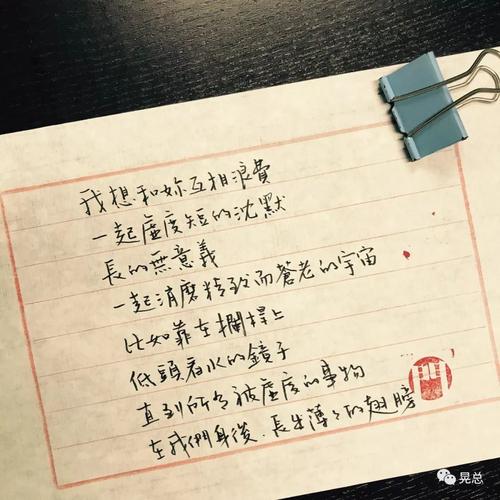 我想和妳互相浪費
一起虛度短的沈默
長的無意義
一起消磨精致而蒼老的宇宙
比如靠在欄桿上
低頭看水的鏡子
直到所有被虛度的事物
在我們身後，長出薄々的翅膀
晃总